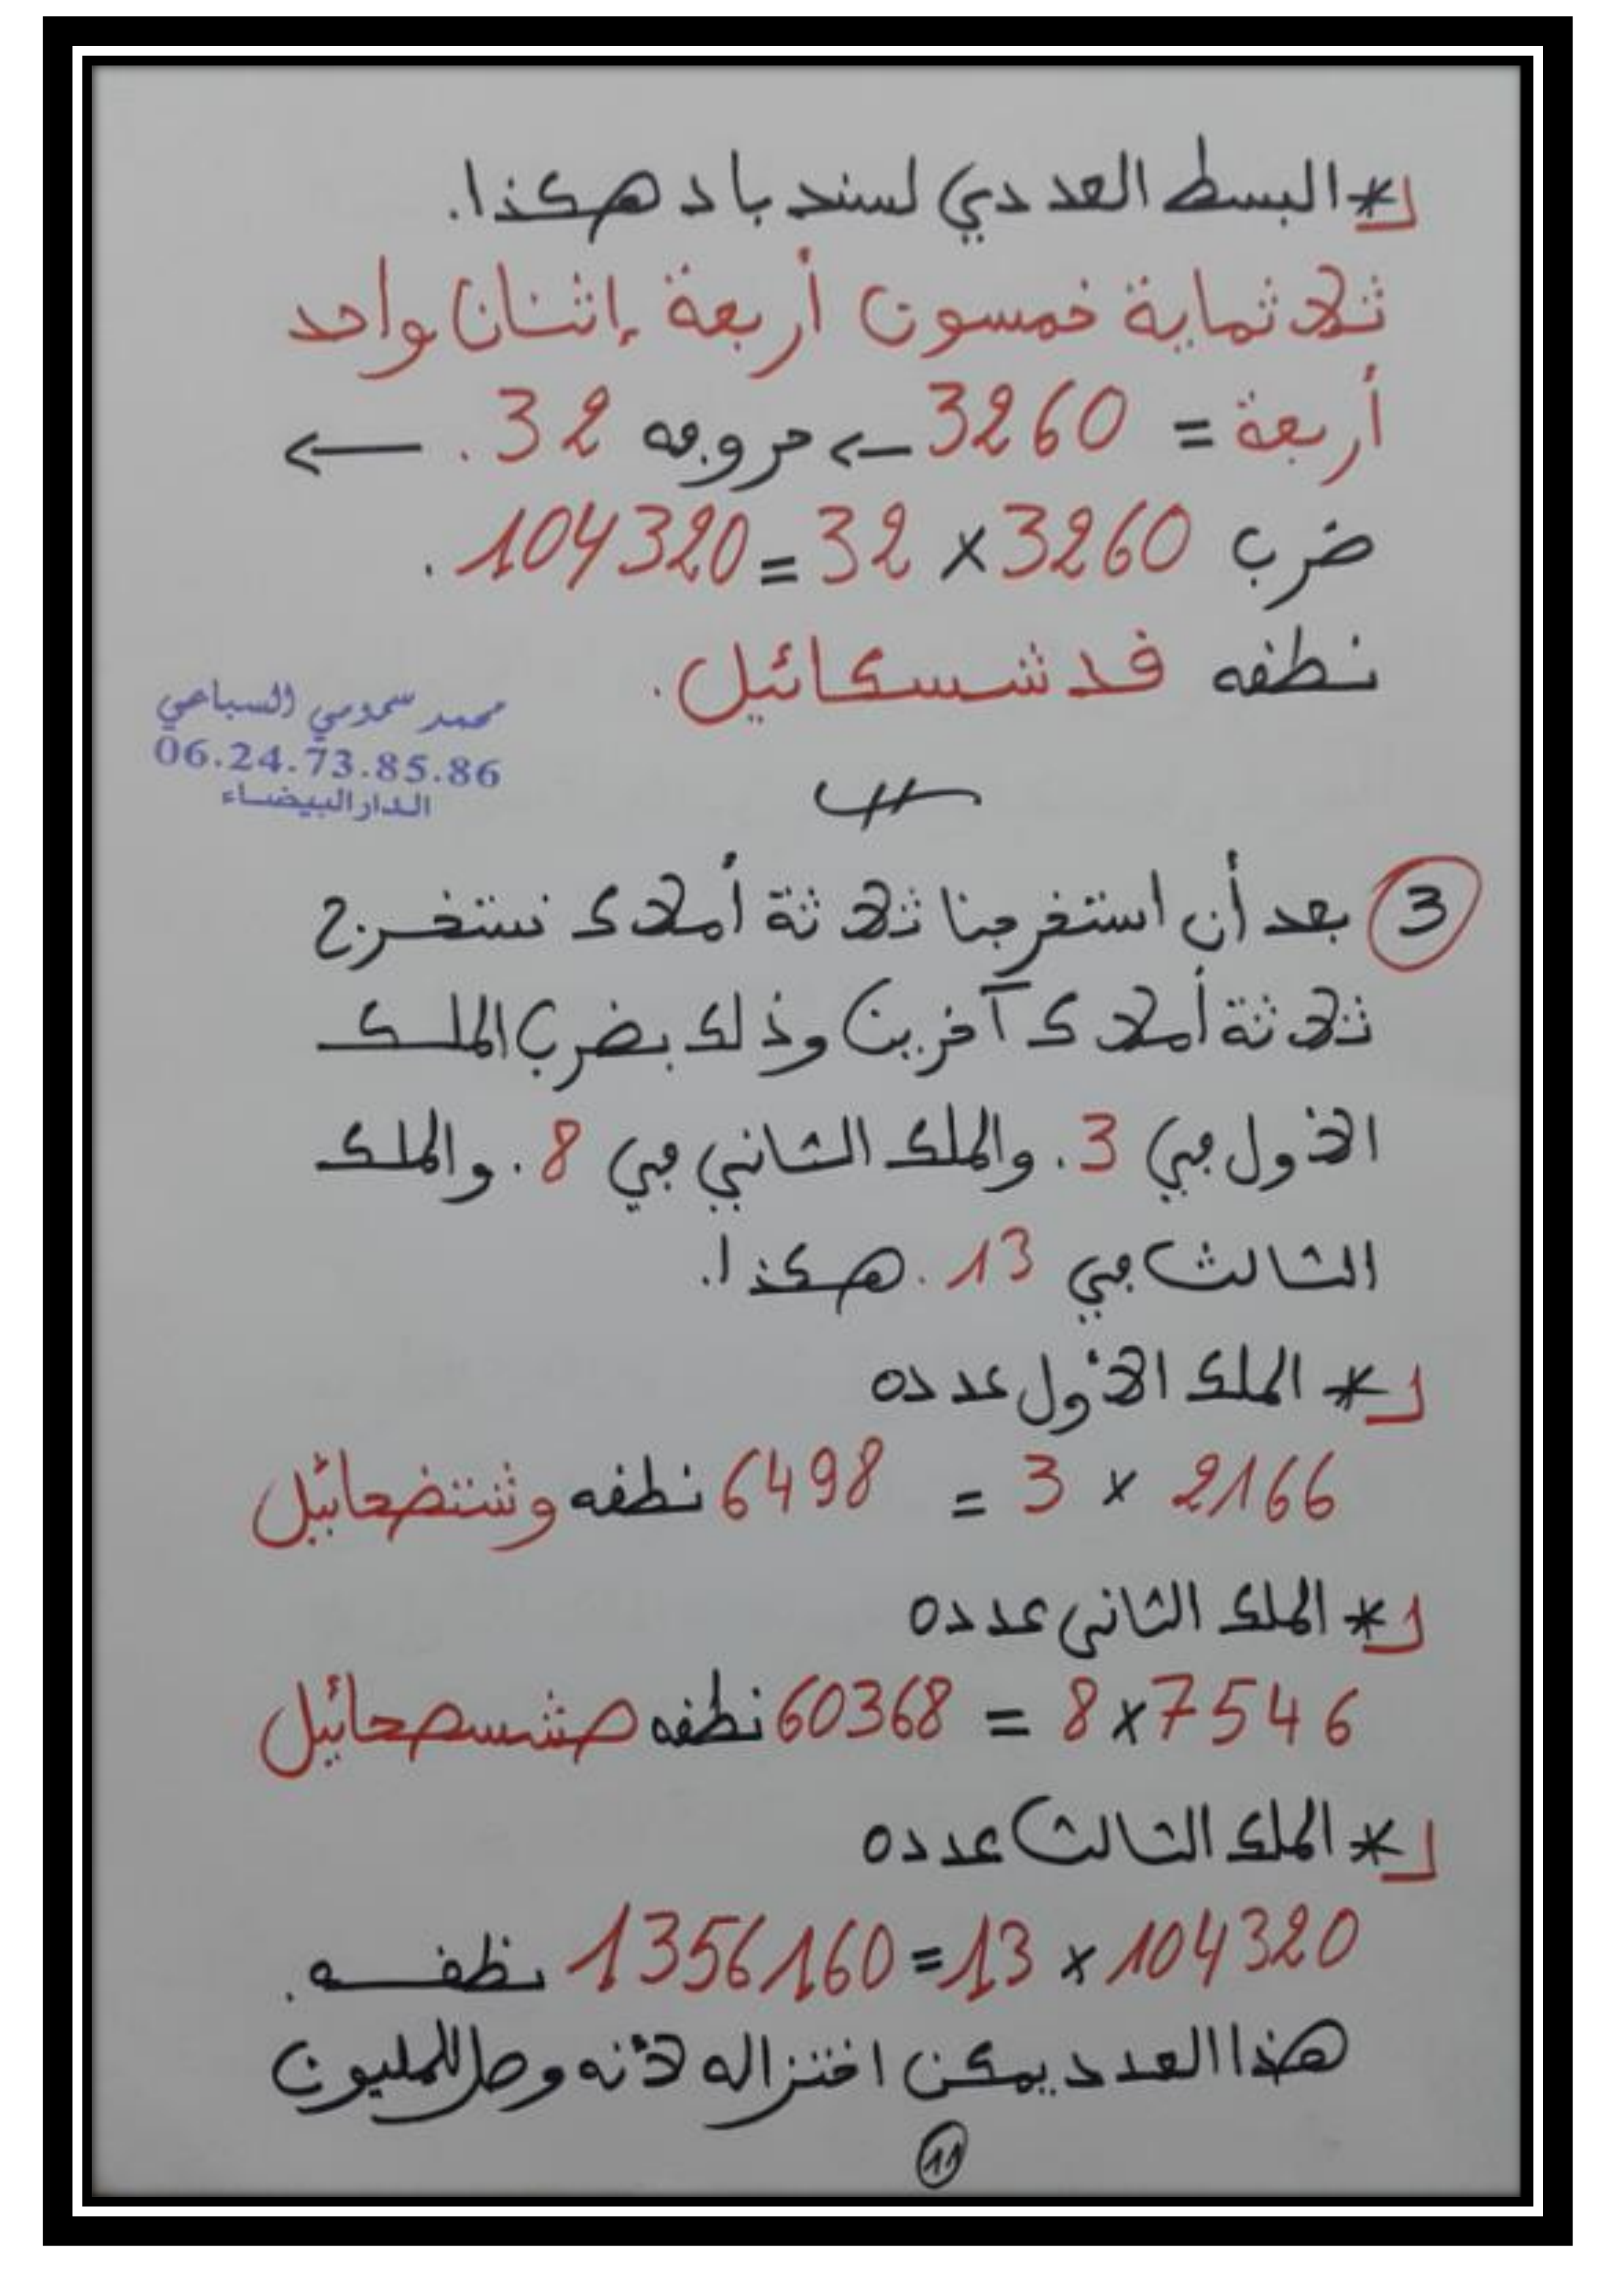 * البسط العددي لسند باد هكذا.
ثلاثماية خمسون أربعة إثنان واحد
أربعة = 3260 ← حروفه 32. ←
ضرب 3260 × 32 = 104320.
نطقه قدشسكائيل.
محمد سمومي السباعي
06.24.73.85.86
الدار البيضاء
3 بعد أن استخرجنا ثلاثة أملاك نستخرج
ثلاثة أملاك آخرين وذلك بضرب الملك
الأول في 3. والملك الثاني في 8. والملك
الثالث في 13. هكذا.
* الملك الأول عدده
2166 × 3 = 6498 نطقه وشتضحائيل
* الملك الثاني عدده
7546 × 8 = 60368 نطقه صشسصحائيل
* الملك الثالث عدده
104320 × 13 = 1356160 نطقه.
هذا العدد يمكن اختزاله لأنه وصل للمليون
11